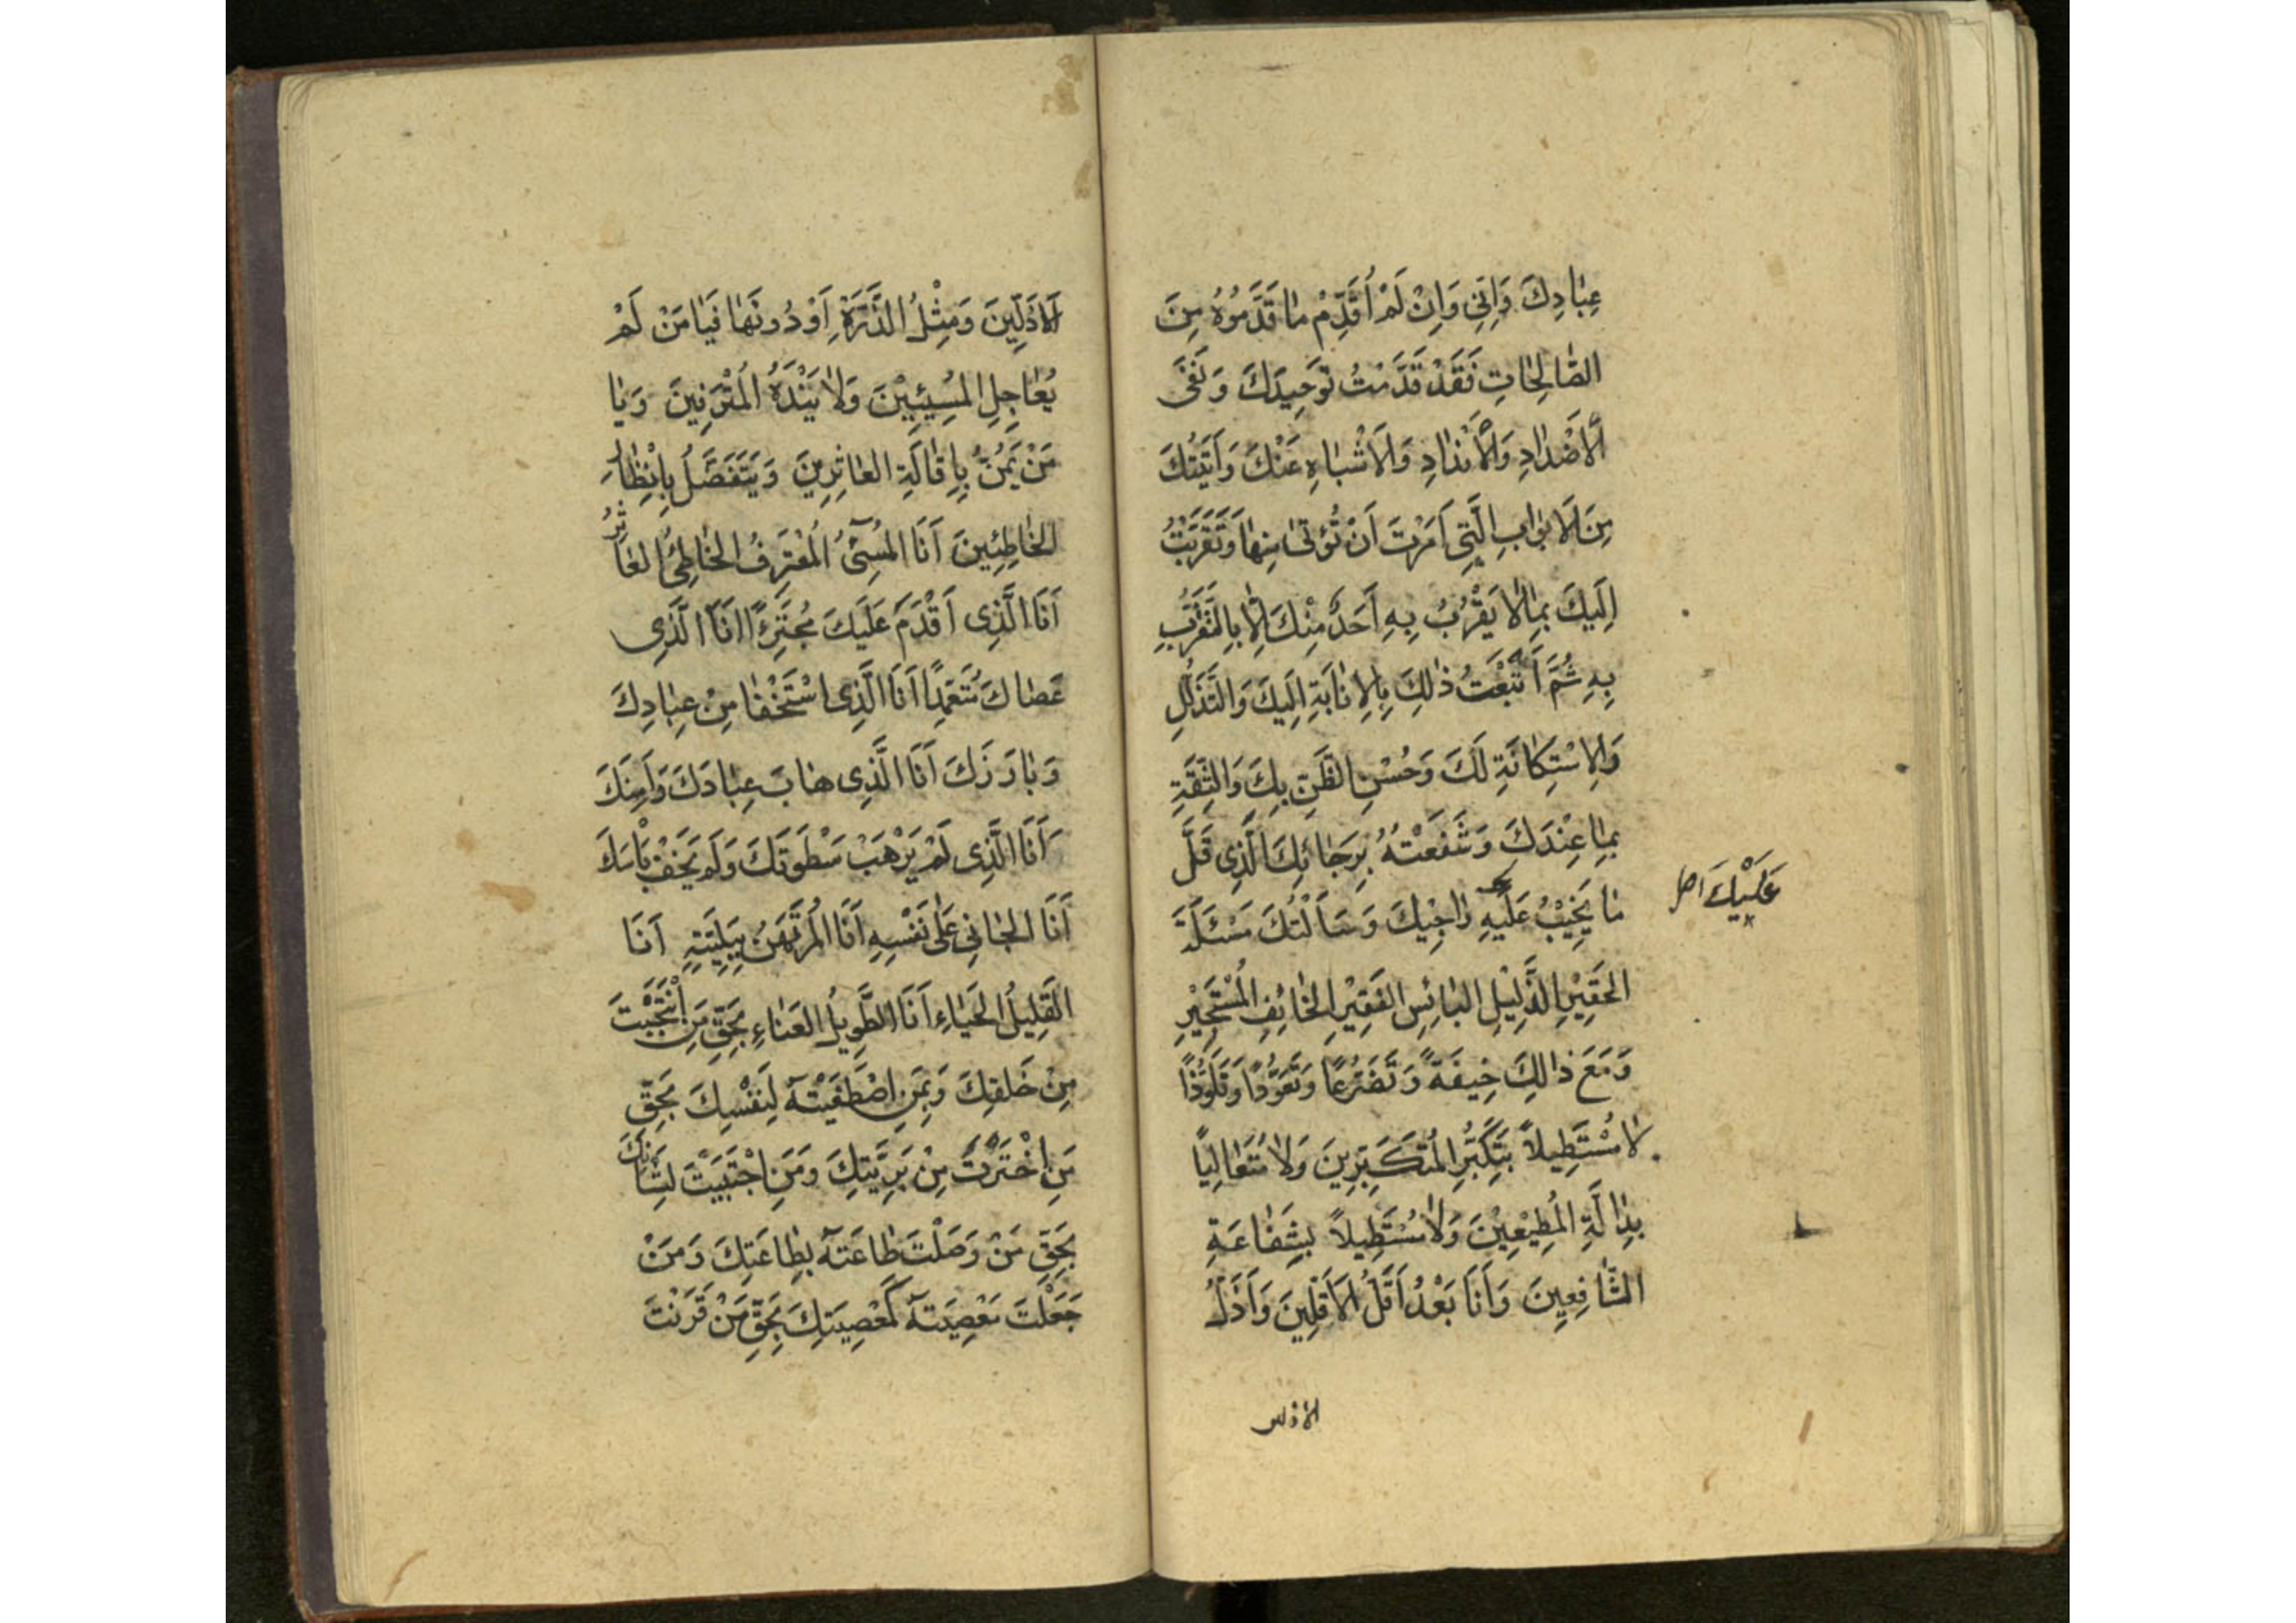 عِبَادِكَ وَاِنّي وَاِنْ لَمْ اُقَدِّمْ مَا قَدَّمُوهُ مِنَ
الصَّالِحَاتِ فَقَدْ قَدَّمْتُ تَوْحِيدَكَ وَنَفْىَ
الْاَضْدَادِ وَالْاَنْدَادِ وَالْاَشْبَاهِ عَنْكَ وَاَتَيْتُكَ
مِنَ الْاَبْوَابِ الَّتِي اَمَرْتَ اَنْ تُؤْتٰى مِنْهَا وَتَقَرَّبْتُ
اِلَيْكَ بِمَا لَا يَقْرُبُ بِهِ اَحَدٌ مِنْكَ اِلَّا بِالتَّقَرُّبِ
بِهِ ثُمَّ اَتْبَعْتُ ذٰلِكَ بِالْاِنَابَةِ اِلَيْكَ وَالتَّذَلُّلِ
وَالْاِسْتِكَانَةِ لَكَ وَحُسْنِ الظَّنِّ بِكَ وَالثِّقَةِ
بِمَا عِنْدَكَ وَشَفَعْتُهُ بِرَجَائِكَ الَّذِي قَلَّ
مَا يَخِيْبُ عَلَيْهِ رَاجِيْكَ وَسَاَلْتُكَ مَسْئَلَةَ
عَلَيْكَ اصل
الْحَقِيْرِ الذَّلِيْلِ الْبَائِسِ الْفَقِيْرِ الْخَائِفِ الْمُسْتَجِيْرِ
وَمَعَ ذَالِكَ خِيفَةً وَتَضَرُّعًا وَتَعَوُّذًا وَتَلَوُّذًا
لَا مُسْتَطِيلاً بِتَكَبُّرِ الْمُتَكَبِّرِينَ وَلَا مُتَعَالِيًا
بِدَالَّةِ الْمُطِيْعِيْنَ وَلَا مُسْتَطِيلاً بِشَفَاعَةِ
الشَّافِعِينَ وَاَنَا بَعْدُ اَقَلُّ الْاَقَلِّينَ وَاَذَلُّ
الاذلين
الْاَذَلِّينَ وَمِثْلُ الذَّرَّةِ اَوْ دُونَهَا فَيَا مَنْ لَمْ
يُعَاجِلِ الْمُسِيْئِيْنَ وَلَا يَنْدَهُ الْمُتْرَفِينَ وَيَا
مَنْ يَمُنُّ بِاِقَالَةِ الْعَاثِرِينَ وَيَتَفَضَّلُ بِاِنْظَارِ
الْخَاطِئِينَ اَنَا الْمُسِىْءُ الْمُعْتَرِفُ الْخَاطِئُ الْعَاثِرُ
اَنَا الَّذِى اَقْدَمَ عَلَيْكَ مُجْتَرِئًا اَنَا الَّذِى
عَصَاكَ مُتَعَمِّدًا اَنَا الَّذِى اسْتَخْفَا مِنْ عِبَادِكَ
وَبَارَزَكَ اَنَا الَّذِى هَابَ عِبَادَكَ وَاَمِنَكَ
اَنَا الَّذِى لَمْ يَرْهَبْ سَطْوَتَكَ وَلَمْ يَخَفْ بَاْسَكَ
اَنَا الْجَانِي عَلٰى نَفْسِهِ اَنَا الْمُرْتَهَنُ بِبَلِيَّتِهِ اَنَا
الْقَلِيلُ الْحَيَاءِ اَنَا الطَّوِيلُ الْعَنَاءِ بِحَقِّ مَنِ انْتَجَبْتَ
مِنْ خَلْقِكَ وَبِمَنِ اصْطَفَيْتَهُ لِنَفْسِكَ بِحَقِّ
مَنِ اخْتَرْتَ مِنْ بَرِيَّتِكَ وَمَنِ اجْتَبَيْتَ لِشَانِكَ
بِحَقِّ مَنْ وَصَلْتَ طَاعَتَهُ بِطَاعَتِكَ وَمَنْ
جَعَلْتَ مَعْصِيَتَهُ كَمَعْصِيَتِكَ بِحَقِّ مَنْ قَرَنْتَ